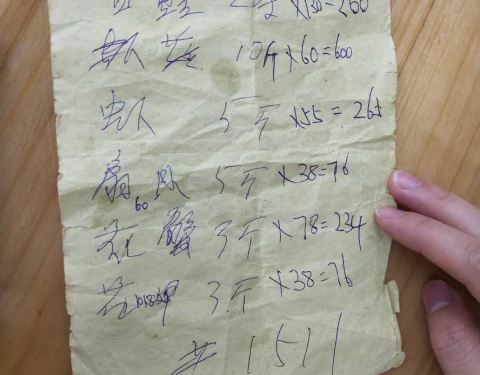 2斤×130=260
虾 10斤×60=600
虫下 5斤×55=265
扇风 5斤×38=76
60
花蟹 3斤×78=234
花甲 3斤×38=76
共1511